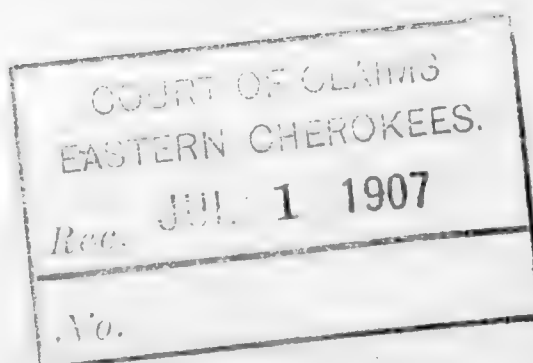 COURT OF CLAIMS
EASTERN CHEROKEES.
Rec. JUL 1 1907
No.